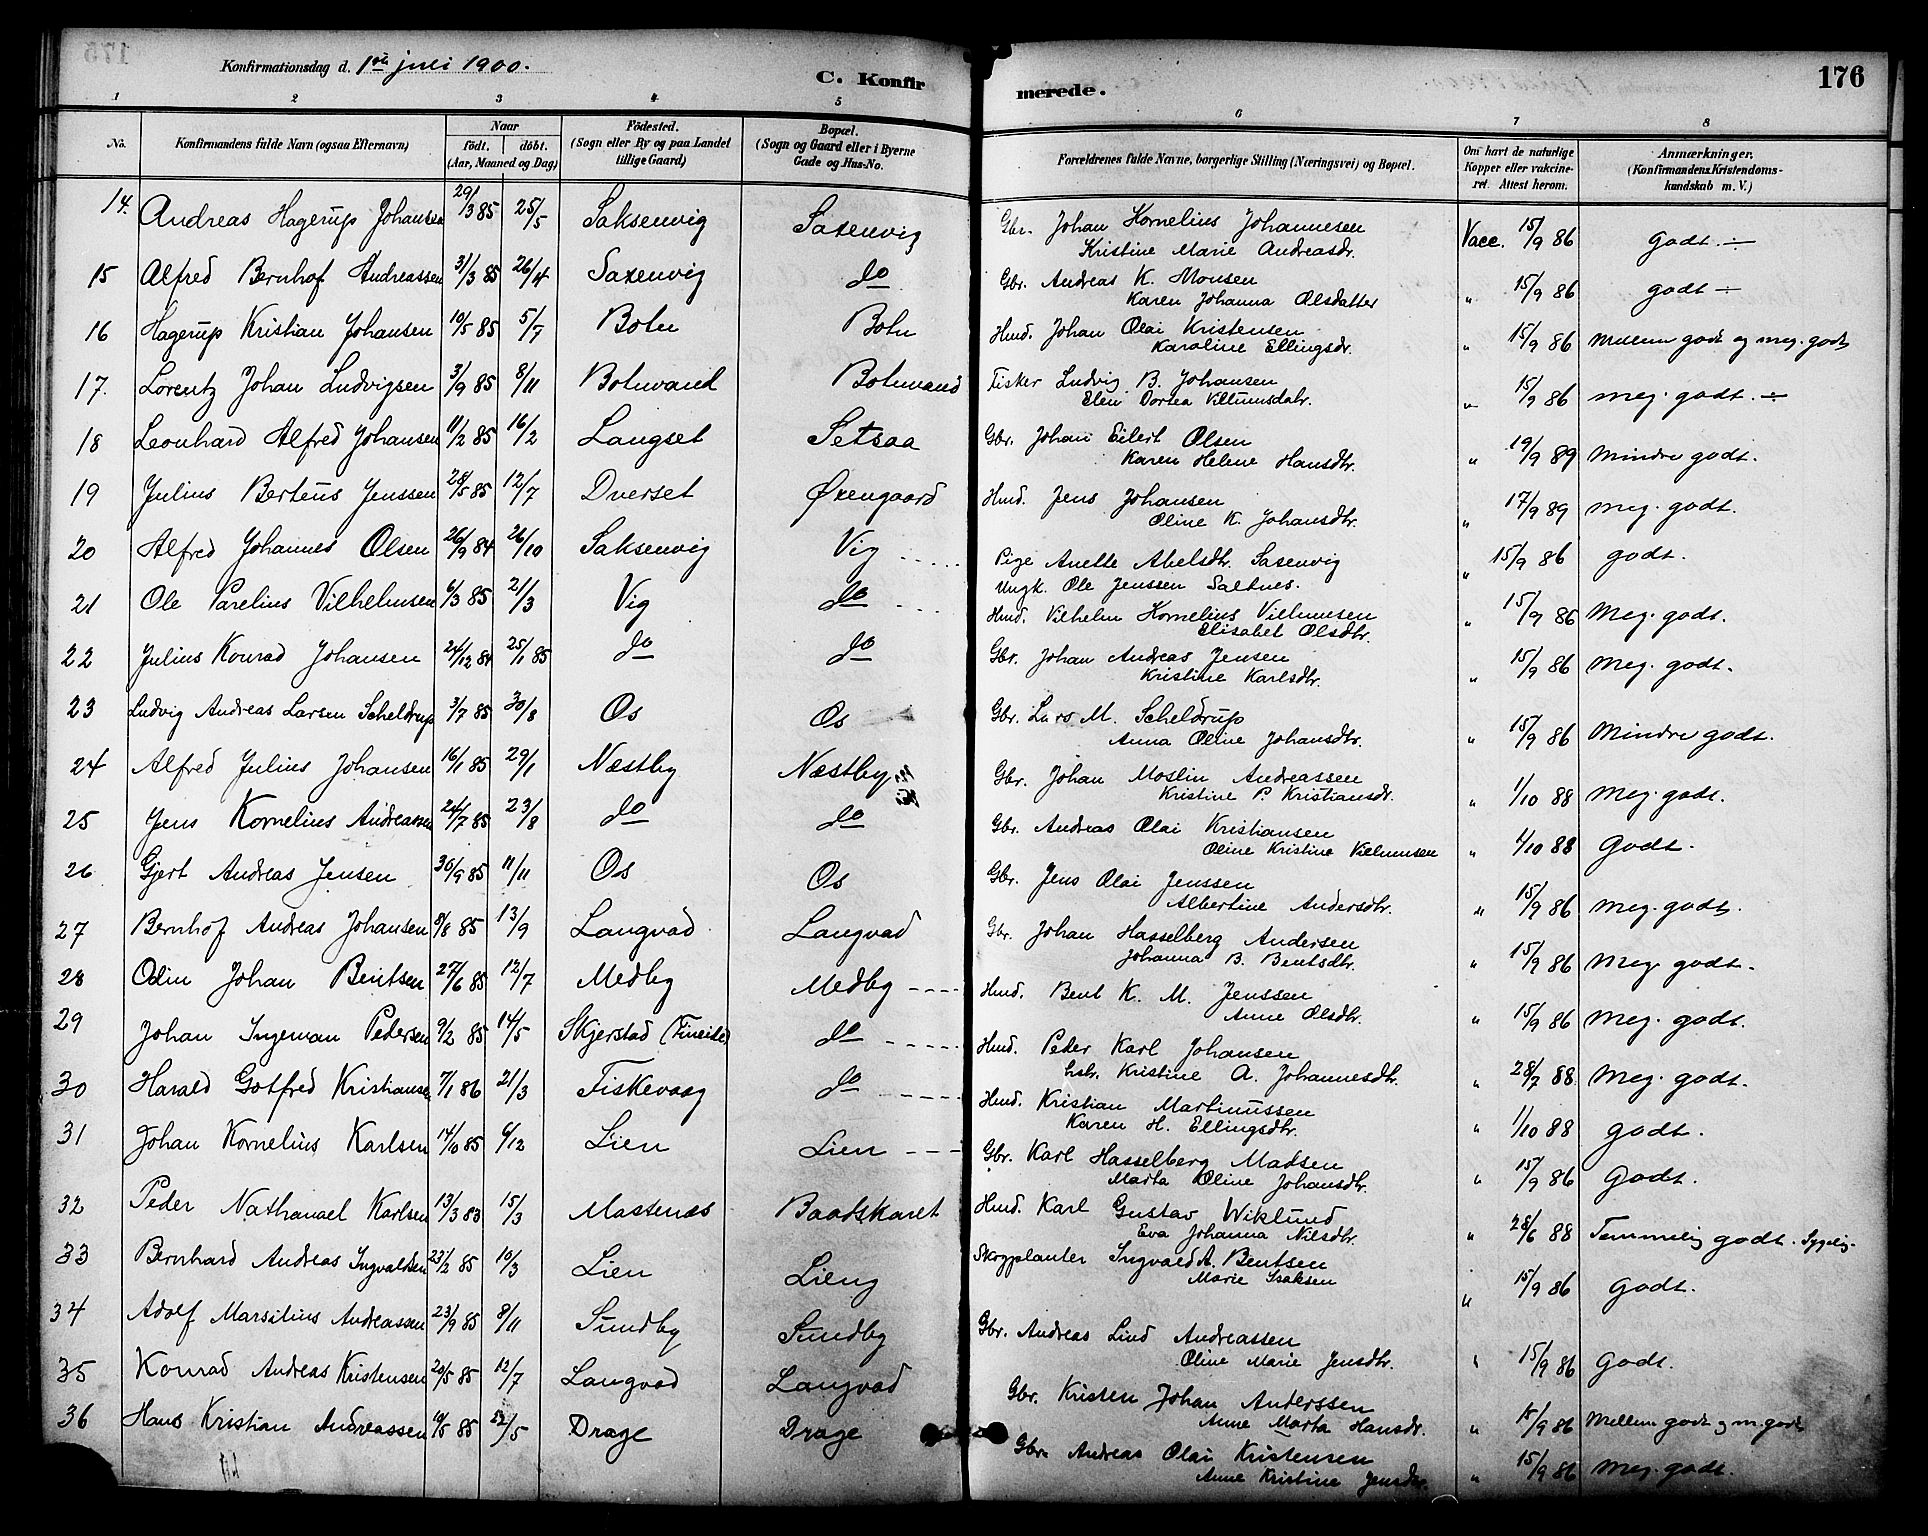 Konfirmationsdag d. 1ste juli 1900.
C. Konfirmerede.
176
1 2 3 4 5 6 7 8
No. | Konfirmandens fulde Navn (ogsaa Efternavn) | Naar født. døbt. (Aar, Maaned og Dag) | Fødested. (Sogn eller By og paa Landet tillige Gaard) | Bopæl. (Sogn og Gaard eller i Byerne Gade og Hus-No. | Forældrenes fulde Navne, borgerlige Stilling (Næringsvei) og Bopæl. | Om havt de naturlige Kopper eller vaccineret. Attest herom. | Anmærkninger. (Konfirmandens Kristendomskundskab m. V.)
14. Andreas Hagerup Johansen 29/3 85 25/5 Saksenvig Saxenvig Gbr. Johan Kornelius Johannesen Vacc. 15/9 86 godt. ÷
Kristine Marie Andreasdr.
15 Alfred Bernhof Andreassen 31/3 85 26/4 Saxenvig do Gbr. Andreas K. Monsen " 15/9 86 godt ÷
Karen Johanna Olsdatter
16 Hagerup Kristian Johansen 10/5 85 5/7 Botn Botn Hmd. Johan Olai Kristensen " 15/9 86 mellem godt og meg. godt
Karoline Ellingsdr.
17. Lorentz Johan Ludvigsen 3/9 85 8/11 Botnvand Botnvand Fisker Ludvig B. Johansen " 15/9 86 meg. godt. ÷
Elen Dortea Villumsdatr.
18 Leonhard Alfred Johansen 11/2 85 16/2 Langset Setsaa Gbr. Johan Eilert Olsen " 19/9 89 Mindre godt.
Karen Helene Hansdtr.
19 Julius Berteus Jenssen 28/5 85 12/7 Dverset Øxengaard Hmd. Jens Johansen " 17/9 89 meg. godt.
Oline K. Johansdtr.
20 Alfred Johannes Olsen 26/9 84 26/10 Saksenvig Vig Pige Anette Abelsdtr. Saxenvig " 15/9 86 godt.
Ungk. Ole Jenssen Saltnes.
21 Ole Parelius Vilhelmsen 6/3 85 21/3 Vig do Hmd. Vilhelm Kornelius Villumsen " 15/9 86 Meg. godt.
Elisabet Olsdtr.
22 Julius Konrad Johansen 24/12 84 25/1 85 do do Gbr. Johan Andreas Jensen " 15/9 86 Meg. godt.
Kristine Karlsdtr.
23 Ludvig Andreas Larsen Scheldrup 3/7 85 30/8 Os Os Gbr. Lars M. Scheldrup " 15/9 86 Mindre godt.
Anna Oline Johansdtr.
24 Alfred Julius Johansen 16/1 85 29/1 Næstby Næstby Gbr. Johan Moslin Andreassen " 1/10 88 Meg. godt.
Kristine P. Kristiansdr.
25 Jens Kornelius Andreassen 24/7 85 23/8 do do Gbr. Andreas Olai Kristiansen " 1/10 88 Godt.
Oline Kristine Villumsen
26 Gjert Andreas Jensen 30/9 85 11/11 Os Os Gbr. Jens Olai Jenssen " 15/9 86 Meg. godt.
Albertine Andersdtr.
27 Bernhof Andreas Johansen 8/8 85 13/9 Langvad Langvad Gbr. Johan Hasselberg Andersen " 15/9 86 Meg. godt.
Johanna B. Bentsdtr.
28 Odin Johan Bentsen 27/6 85 12/7 Medby Medby Hmd. Bent K. M. Jenssen " 15/9 86 Meg. godt.
Anne Olsdtr.
29 Johan Ingeman Pedersen 9/2 85 14/5 Skjerstad (Fineide) do Hmd. Peder Karl Johansen " 28/7 88 Meg. godt.
hstr. Kristine A. Johannesdtr.
30 Harald Gotfred Kristiansen 7/1 86 21/3 Fiskevaag do Hmd. Kristian Martinussen " 1/10 88 godt.
Karen H. Ellingsdtr.
31 Johan Kornelius Karlsen 14/10 85 6/12 Lien Lien Gbr. Karl Hasselberg Madsen " 15/9 86 Godt.
Marta Oline Johansdtr.
32 Peder Nathanael Karlsen 13/3 83 15/3 Massenæs Baadskaret Hmd. Karl Gustav Wiklund " 28/6 88 Temmelig godt. Sygelig.
Eva Johanna Nilsdtr.
33 Bernhard Andreas Ingvaldsen 23/2 85 10/3 Lien Lieng Skogplanter Ingvald A. Bentsen " 15/9 86 Godt.
Marie Isaksen
34 Adolf Marsilius Andreassen 23/9 85 8/11 Sundby Sundby Gbr. Andreas Lind Andreassen " 15/9 86 Godt.
Oline Marie Jensdtr.
35 Konrad Andreas Kristensen 20/5 85 12/7 Langvad Langvad Gbr. Kristen Johan Anderssen " 15/9 86 Mellem godt og m. godt
Anne Marta Hansdr.
36 Hans Kristian Andreassen 10/5 85 22/5 Drage Drage Gbr. Andreas Olai Kristensen " 15/9 86 Meg. godt.
Anne Kristine Jensdtr.